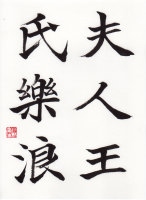 夫人王
氏樂浪